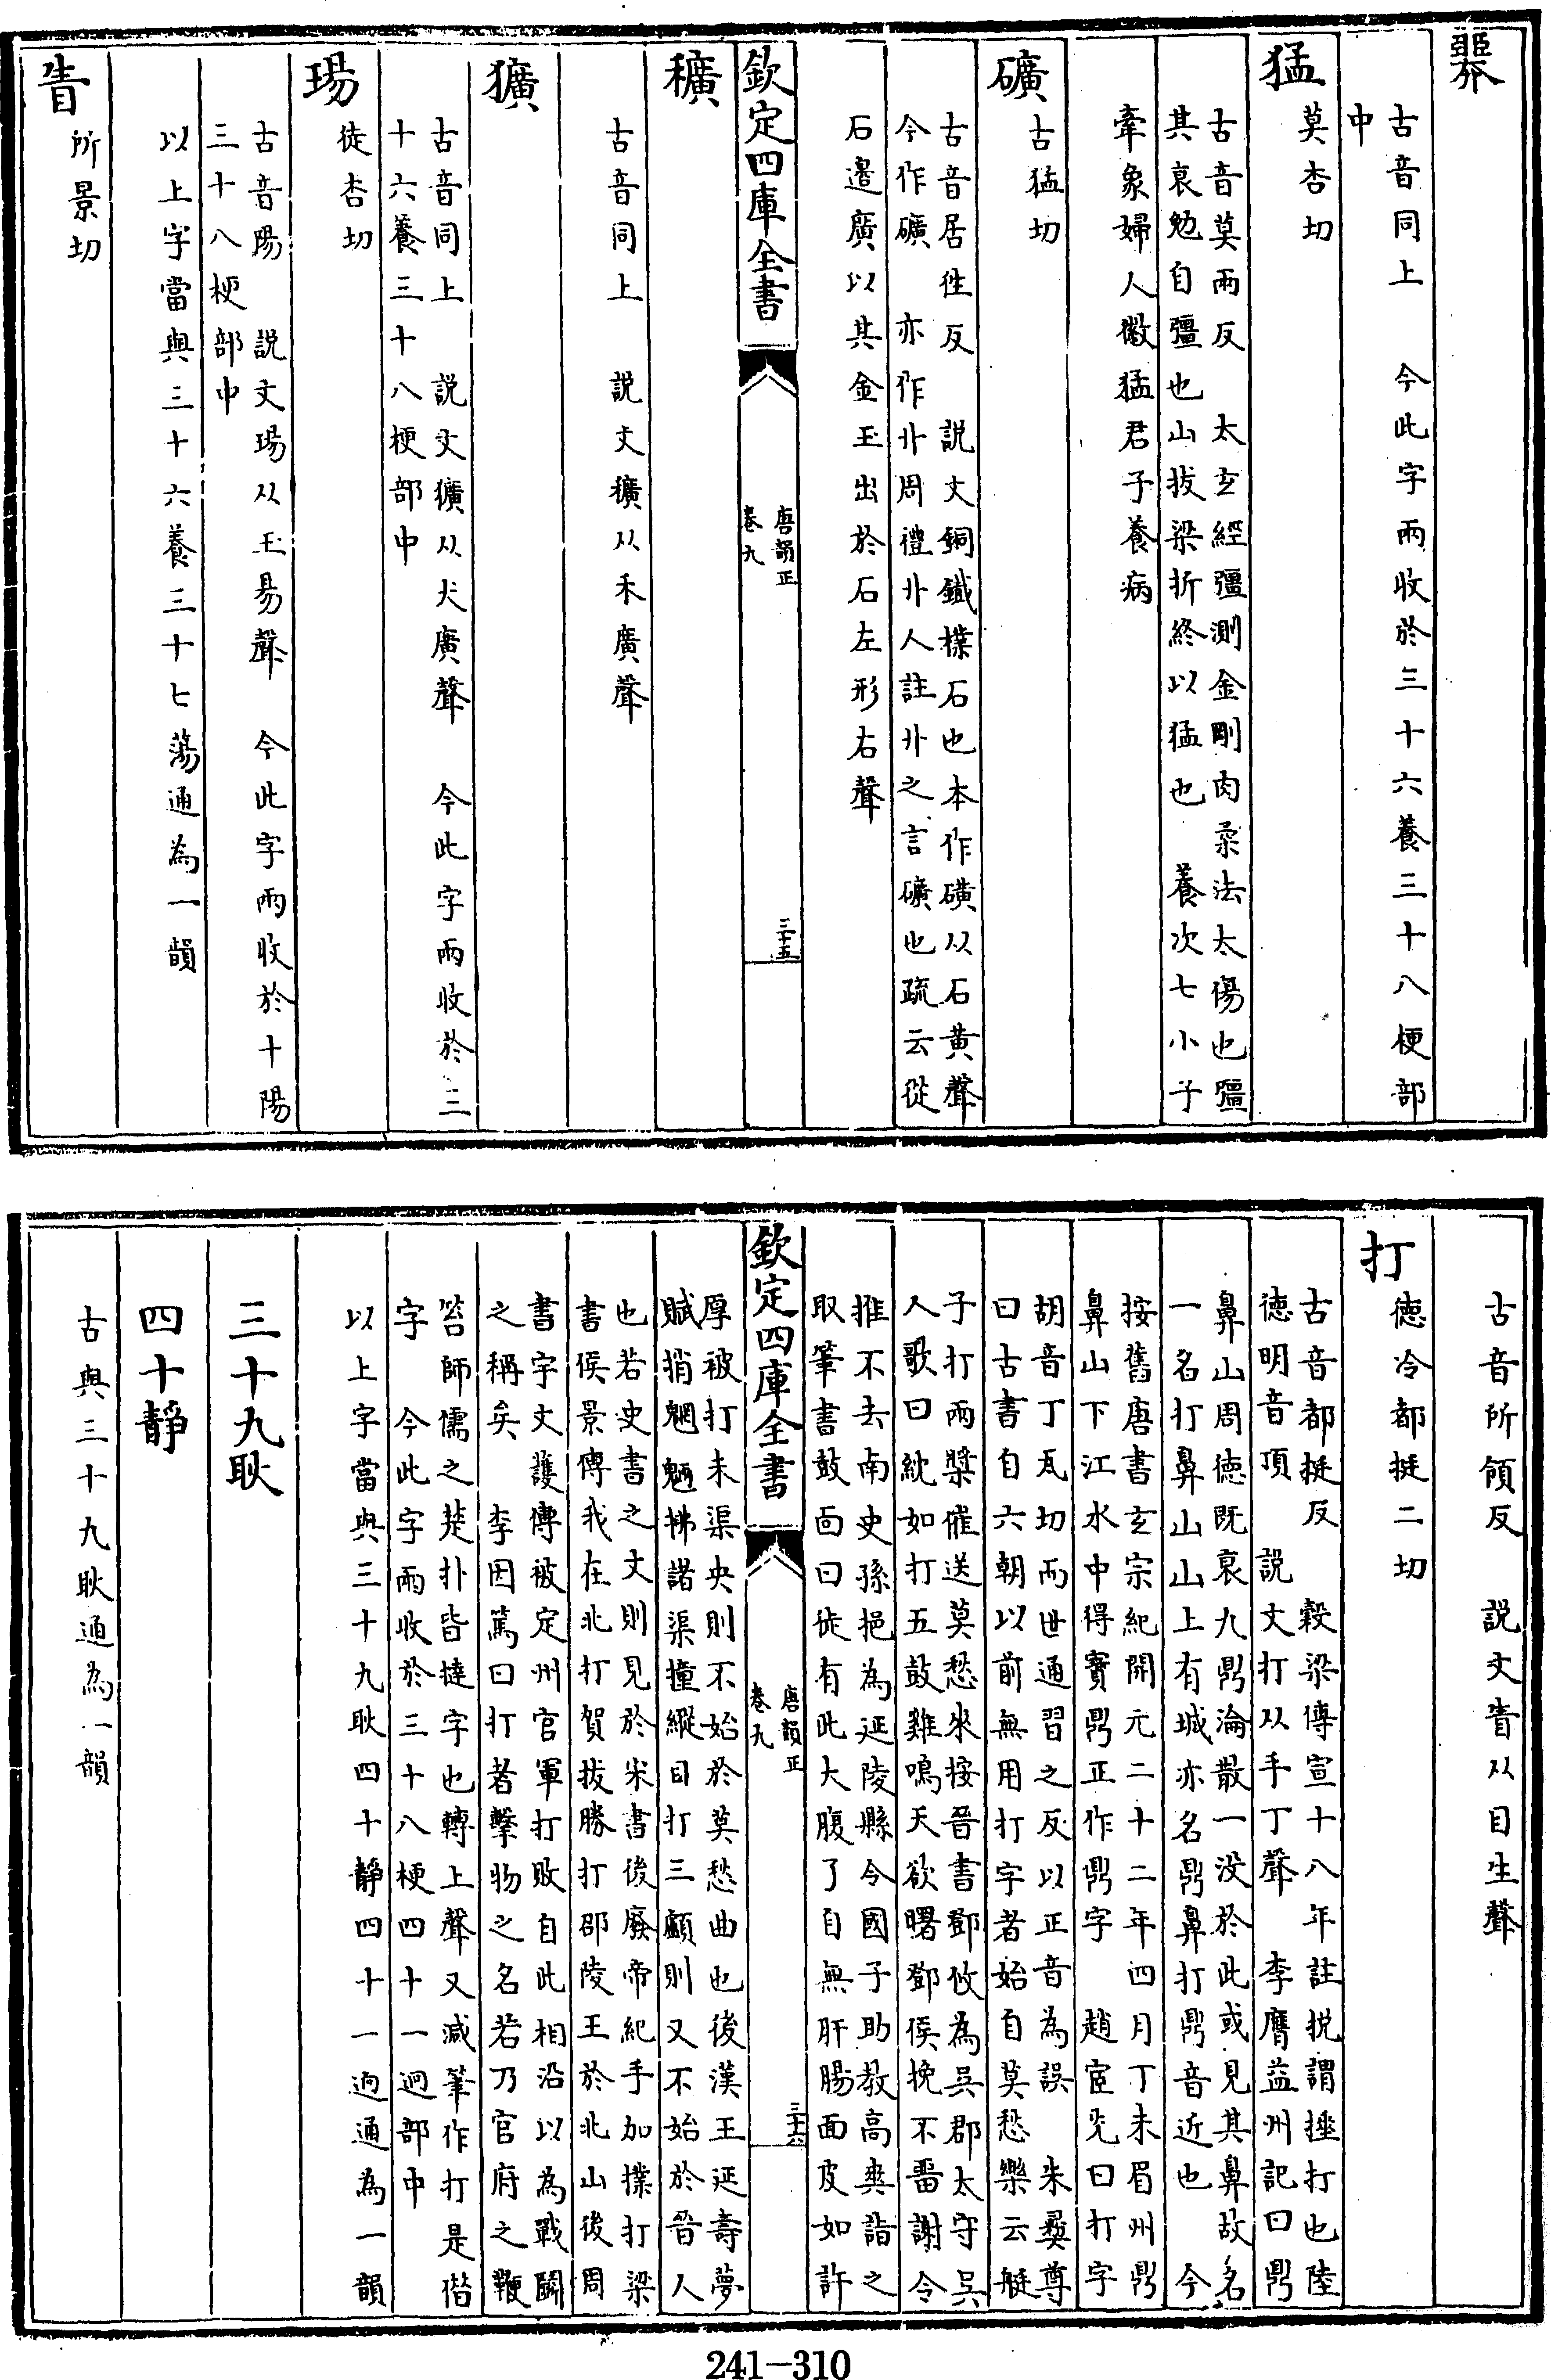 㢡
古音同上　今此字兩收於三十六養三十八梗部
中
猛
莫杏切
古音莫兩反　太玄經彊測金剛肉柔法太傷也彊
其衰勉自彊也山拔梁折終以猛也　養次七小子
牽象婦人徽猛君子養病
礦
古猛切
古音居徃反　説文銅鐵樸石也本作磺从石黄聲
今作礦　亦作丱周禮丱人註丱之言礦也疏云從
石邉廣以其金玉出於石左形右聲
欽定四庫全書
唐韻正
卷九
三十五
穬
古音同上　説文穬从禾廣聲
獷
古音同上　説文獷从犬廣聲　今此字兩收於三
十六養三十八梗部中
瑒
徒杏切
古音陽　説文瑒从玉昜聲　今此字兩收於十陽
三十八梗部中
以上字當與三十六養三十七蕩通為一韻
眚
所景切
古音所領反　説文眚从目生聲
打
德冷都挺二切
古音都挺反　穀梁傳宣十八年註捝謂捶打也陸
德明音頂　説文打从手丁聲　李膺益州記曰鼎
鼻山周德既衰九鼎淪散一没於此或見其鼻故名
一名打鼻山山上有城亦名鼎鼻打鼎音近也　今
按舊唐書玄宗紀開元二十二年四月丁未眉州鼎
鼻山下江水中得寳鼎正作鼎字　趙宧光曰打字
胡音丁瓦切而世通習之反以正音為誤　朱彛尊
曰古書自六朝以前無用打字者始自莫愁樂云艇
子打兩槳催送莫愁來按晉書鄧攸為吳郡太守吳
人歌曰紞如打五鼓雞鳴天欲曙鄧侯挽不畱謝令
推不去南史孫挹為延陵縣令國子助教高爽詣之
取筆書鼓面曰徒有此大腹了自無肝腸面皮如許
欽定四庫全書
唐韻正
卷九
三十六
厚被打未渠央則不始於莫愁曲也後漢王延壽夢
賦捎魍魎拂諸渠撞縱目打三顱則又不始於晉人
也若史書之文則見於宋書後廢帝紀手加撲打梁
書侯景傳我在北打賀拔勝打邵陵王於北山後周
書宇文護傳被定州官軍打敗自此相沿以為戰鬬
之稱矣　李因篤曰打者擊物之名若乃官府之鞭
笞師儒之楚扑皆撻字也轉上聲又減筆作打是偕
字　今此字兩收於三十八梗四十一迥部中
以上字當與三十九耿四十靜四十一迥通為一韻
三十九耿
四十靜
古與三十九耿通為一韻
241-310